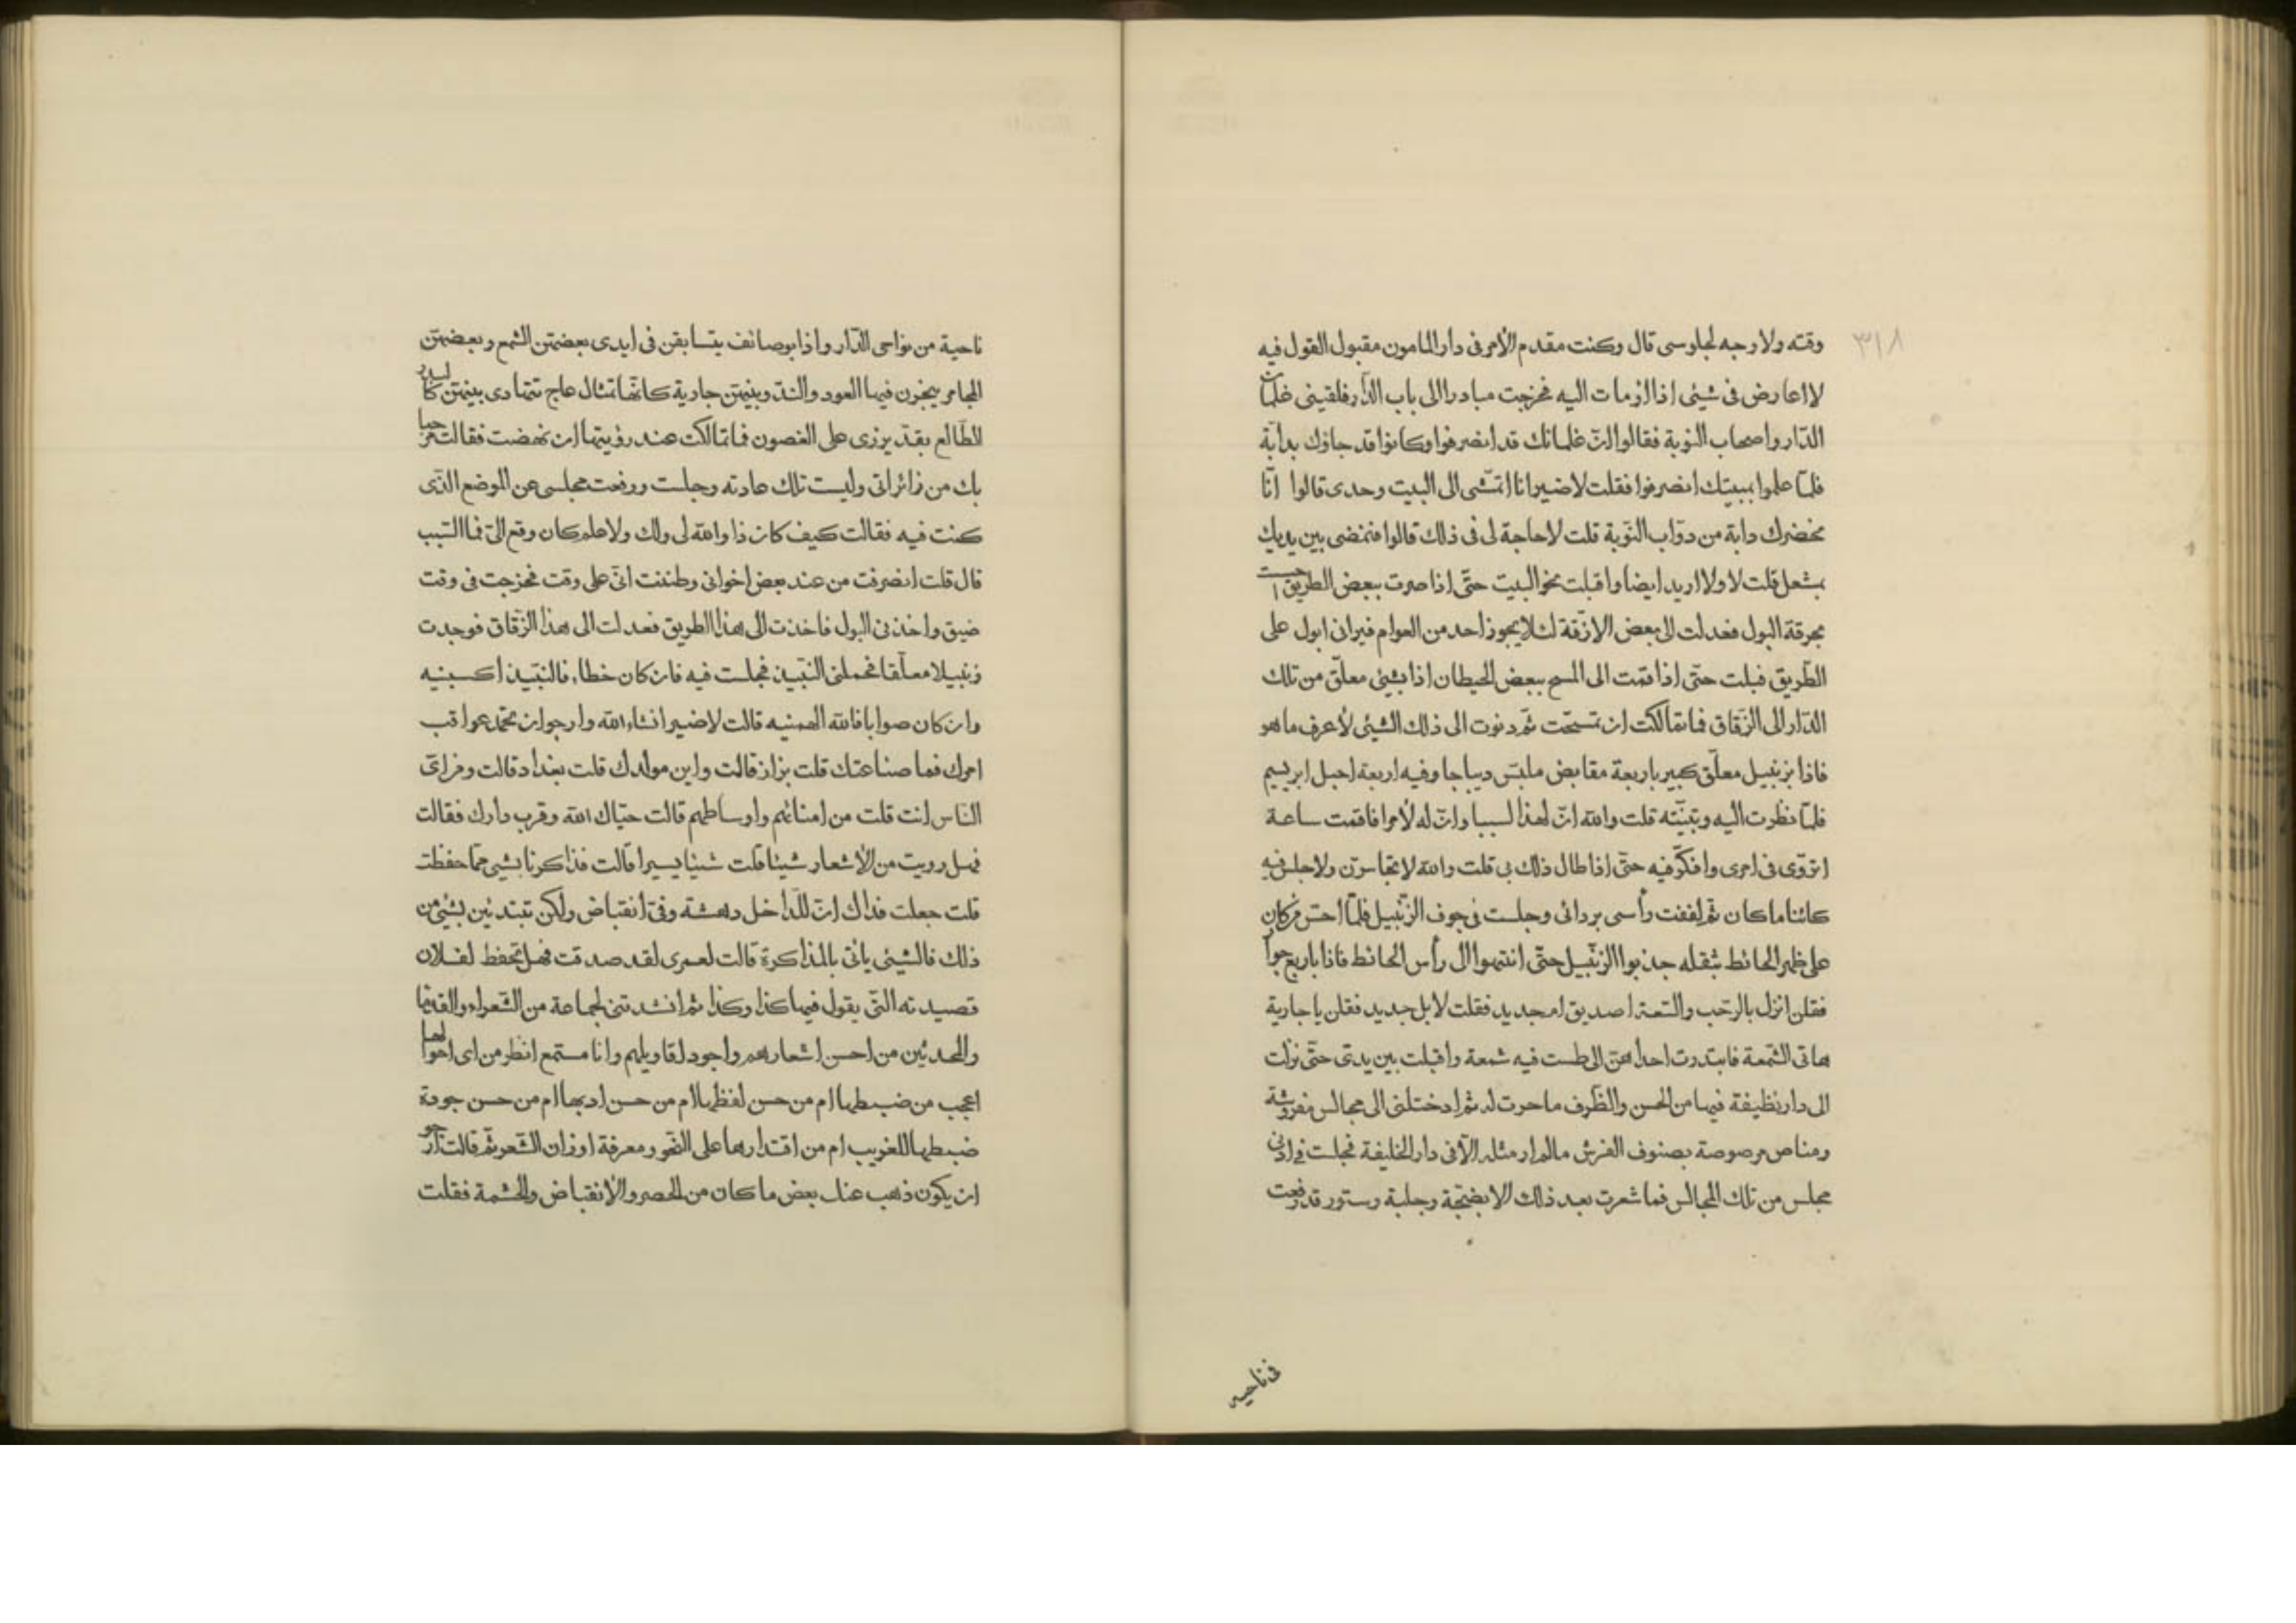 ٣١٨
وقته ولا وجه لجلوسى قال وكنت مقدم الأمر فى دار المامون مقبول القول فيه
لا اعارض فى شيئى اذا اومات اليه فخرجت مبادرا الى باب الدّار فلقينى غلمان
الدّار واصحاب النوبة فقالوا انّ غلمانك قد انصرفوا وكانوا قد جاؤك بدابّة
فلمّا علموا بمبيتك انصرفوا فقلت لا ضير انا اتمشّى الى البيت وحدى قالوا انّا
نحضرك دابة من دوّاب النّوبة قلت لا حاجة لى فى ذلك قالوا فنمضى بين يديك
بمشعل قلت لا ولا اريد ايضا واقبلت نحو البيت حتّى اذا صرت ببعض الطريق احسست
بحرقة البول فعدلت الى بعض الازقّة لئلا يجوز احد من العوام فيرانى ابول على
الطّريق فبلت حتّى اذا قمت الى المسح ببعض الحيطان اذا بشيئى معلّق من تلك
الدّار الى الزّقاق فما تمالكت ان تمسّحت ثمّ دنوت الى ذلك الشيئى لأعرف ما هو
فاذا بزنبيل معلّق كبير باربعة مقابض ملبّس ديباجا وفيه اربعة احبل ابريسم
فلمّا نظرت اليه وتبيّنته قلت والله انّ لهذا لسببا وانّ له لأمرا فاقمت ساعة
اتروّى فى امرى وافكّر فيه حتّى اذا طال ذلك بى قلت والله لاتجاسرنّ ولاجلس فيه
كائنا ما كان ثمّ لففت رأسى بردائى وجلست فى جوف الزنبيل فلمّا احسّ من كان
على ظهر الحائط بثقله جذبوا الزنبيل حتّى انتهوا الى رأس الحائط فاذا باربع جوار
فقلن انزل بالرّحب والسّعة اصديق ام جديد فقلت لا بل جديد فقلن يا جارية
هاتى الشّمعة فابتدرت احداهنّ الى طست فيه شمعة واقبلت بين يدىّ حتّى نزلت
الى دار نظيفة فيها من الحسن والظّرف ما حرت له ثمّ ادخلتنى الى مجالس مفروشة
ومناص مرصوصة بصنوف الفرش مالم ار مثله الّا فى دار الخليفة فجلست فى ادنى
مجلس من تلك المجالس فما شعرت بعد ذلك الا بضجّة وجلبة وستور قد رفعت
فى ناحيه
ناحية من نواحى الدّار واذا بوصائف يتسابقن فى ايدى بعضهنّ الشمع وبعضهنّ
المجامر يبخّرن فيها العود والندّ وبينهنّ جارية كانّها تمثال عاج تتهادى بينهنّ كالبدر
الطّالع بقدّ يزرى على الغصون فما تمالكت عند رؤيتها ان نهضت فقالت مرحبا
بك من زائر اتى وليست تلك عادته وجلست ورفعت مجلسى عن الموضع الّذى
كنت فيه فقالت كيف كان ذا والله لى ولك ولا علم كان وقع الىّ فما السّبب
قال قلت انصرفت من عند بعض اخوانى وظننت انّى على وقت فخرجت فى وقت
ضيق واخذنى البول فاخذت الى هذا الطريق فعدلت الى هذا الزّقاق فوجدت
زنبيلا معلّقا فحملنى النّبيذ فجلست فيه فان كان خطاء فالنّبيذ اكسبنيه
وان كان صوابا فالله الهمنيه قالت لا ضير انشاء الله وارجو ان تحمّد عواقب
امرك فما صناعتك قلت بزاز قالت واين مولدك قلت بغداد قالت ومن اىّ
النّاس انت قلت من امنائهم واوساطهم قالت حيّاك الله وقرب دارك فقالت
فهل رويت من الأشعار شيئا قلت شيئا يسيرا قالت فذاكرنا بشيئ ممّا حفظت
قلت جعلت فداك انّ للدّاخل دهشة وفىّ انقباض ولكن تبتدئين بشيئ من
ذلك فالشيئى ياتى بالمذاكرة قالت لعمرى لقد صدقت فهل تحفظ لفلان
قصيدته التّى يقول فيها كذا وكذا ثمّ انشدتنى لجماعة من الشّعراء والقدما
والمحدثين من احسن اشعارهم واجود اقاويلهم وانا مستمع انظر من اى احوالها
اعجب من ضبطها ام من حسن لفظها ام من حسن ادبها ام من حسن جودة
ضبطها للغريب ام من اقتدارها على النّحو ومعرفة اوزان الشّعر ثمّ قالت ارجو
ان يكون ذهب عنك بعض ما كان من الحصر والأنقباض والحشمة فقلت